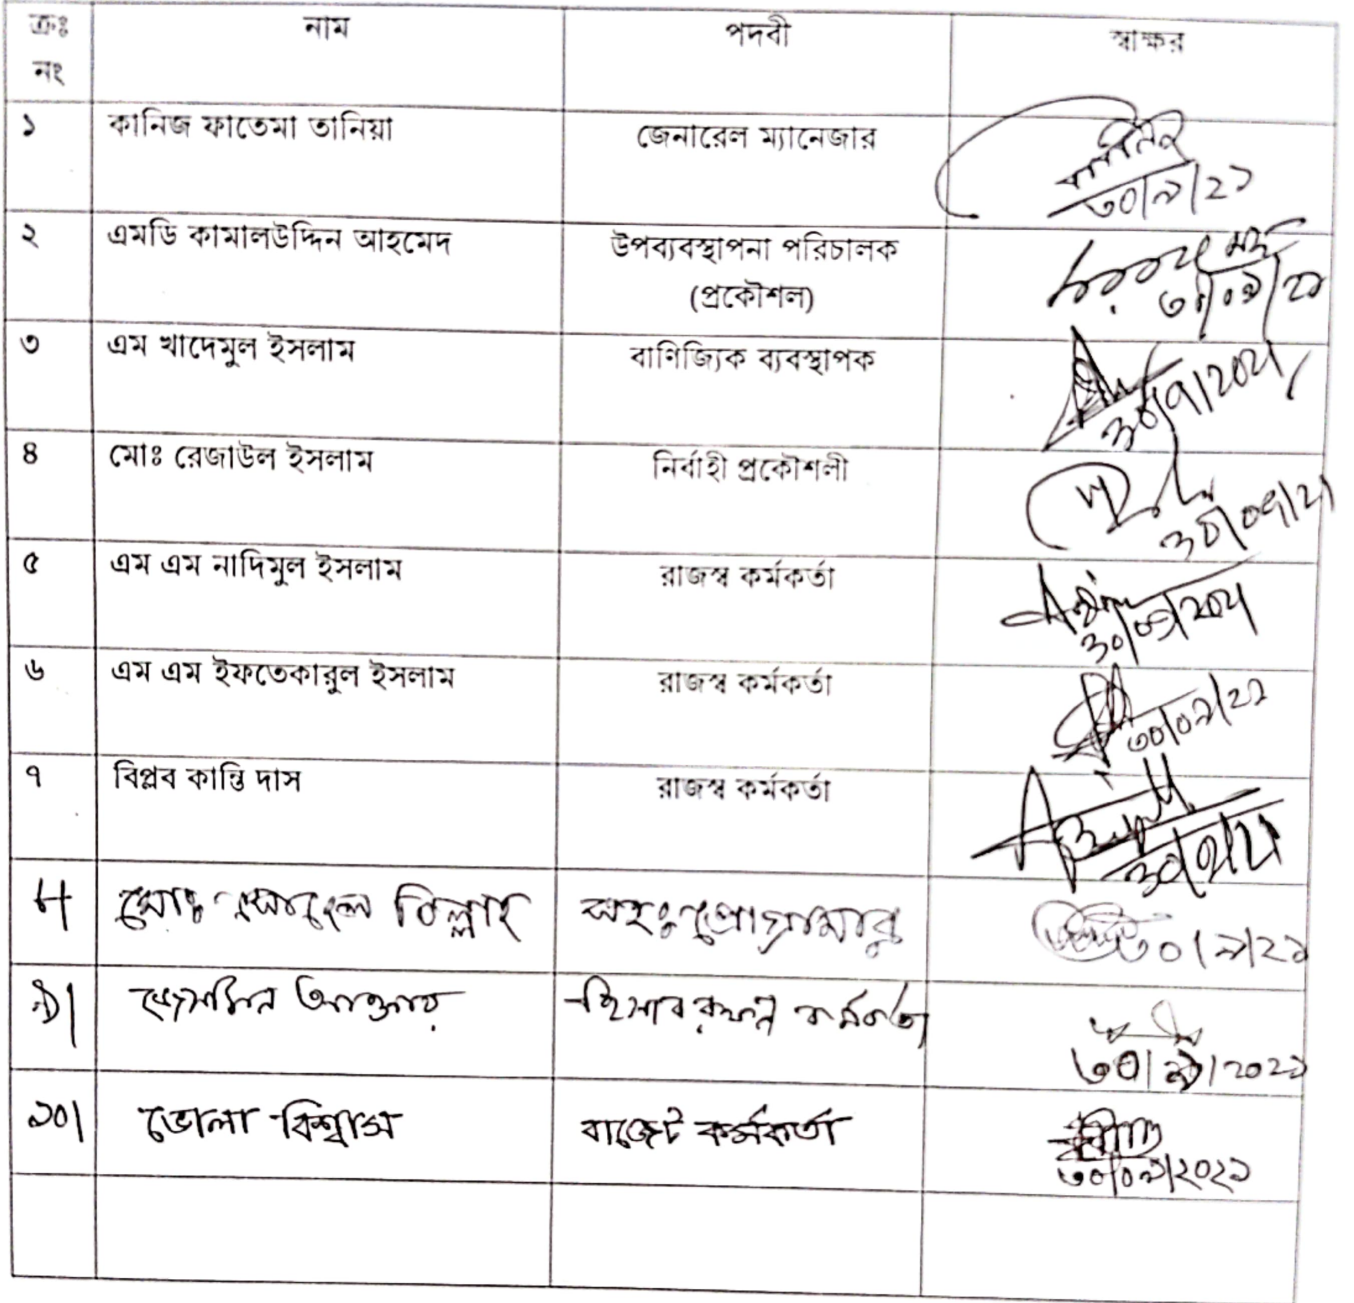 ক্রঃ নং নাম পদবী স্বাক্ষর
১ কানিজ ফাতেমা তানিয়া জেনারেল ম্যানেজার ৩০/৯/২১
২ এমডি কামালউদ্দিন আহমেদ উপব্যবস্থাপনা পরিচালক
(প্রকৌশল) ৩০/০৯/২১
৩ এম খাদেমুল ইসলাম বাণিজ্যিক ব্যবস্থাপক ৩০/৯/২০২১
৪ মোঃ রেজাউল ইসলাম নির্বাহী প্রকৌশলী ৩০/০৯/২১
৫ এম এম নাদিমুল ইসলাম রাজস্ব কর্মকর্তা ৩০/০৯/২০২১
৬ এম এম ইফতেকারুল ইসলাম রাজস্ব কর্মকর্তা ৩০/০৯/২১
৭ বিপ্লব কান্তি দাস রাজস্ব কর্মকর্তা ৩০/৯/২১
৮ মোঃ বিল্লাহ সহঃ প্রোগ্রামার ৩০/৯/২১
৯। জেসমিন আক্তার হিসাব রক্ষন কর্মকর্তা ৩০/৯/২০২১
১০। ভোলা বিশ্বাস বাজেট কর্মকর্তা ৩০/০৯/২০২১